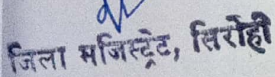 जिला मजिस्ट्रेट, सिरोही